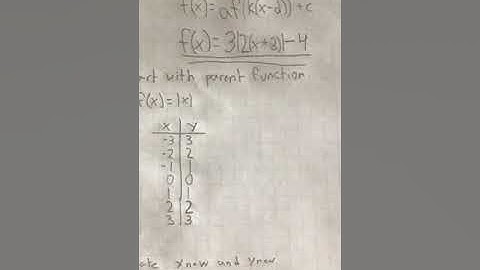 f(x)= af(k(x-d))+c
f(x)= 3|2(x+3)|-4
act with parent function.
f(x)=|x|
x y
-3 3
-2 2
-1 1
0 0
1 1
2 2
3 3
ate xnew and ynew